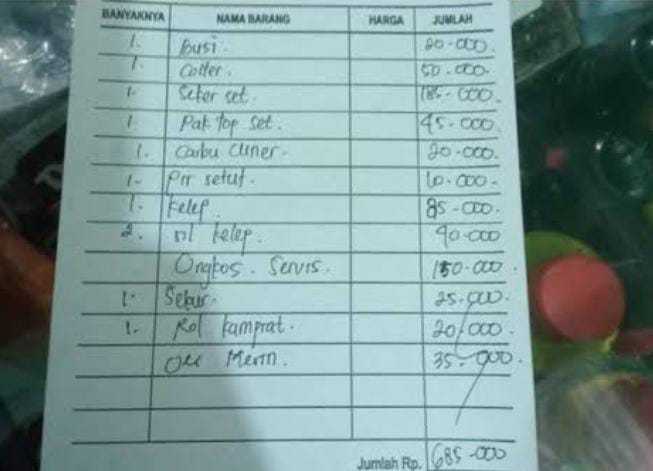 BANYAKNYA NAMA BARANG HARGA JUMLAH
1. Busi. 20.000.
1. Colter. 50.000.
1. Seker set. 185.000.
1 Pak top set. 45.000
1. Carbu cliner. 20.000.
1. Prr setut. 10.000.
1. kelep. 85.000.
2. sil kelep. 40.000
Ongkos. Servis. 150.000.
1. Sekur. 25.000.
1. Rol kamprat. 20.000.
Oli Mesin. 35.000.
Jumlah Rp. 685.000